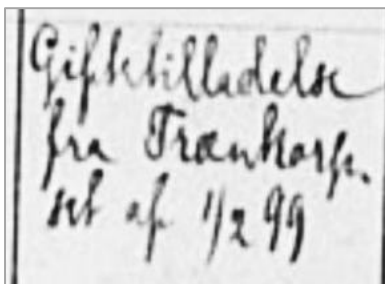 Giftetilladelse
fra Trænkorp-
set af 1/2 99